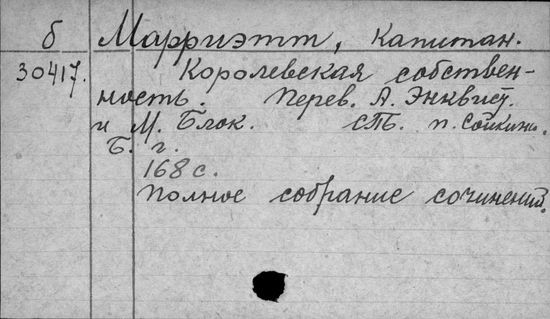 б Марриэтт, Капитан.
30417. Королевская собствен-
ность. Перев. А. Энквист.
и М. Блок. СПБ. п. Сойкин.
Б. г.
168 с.
Полное собрание сочинений.